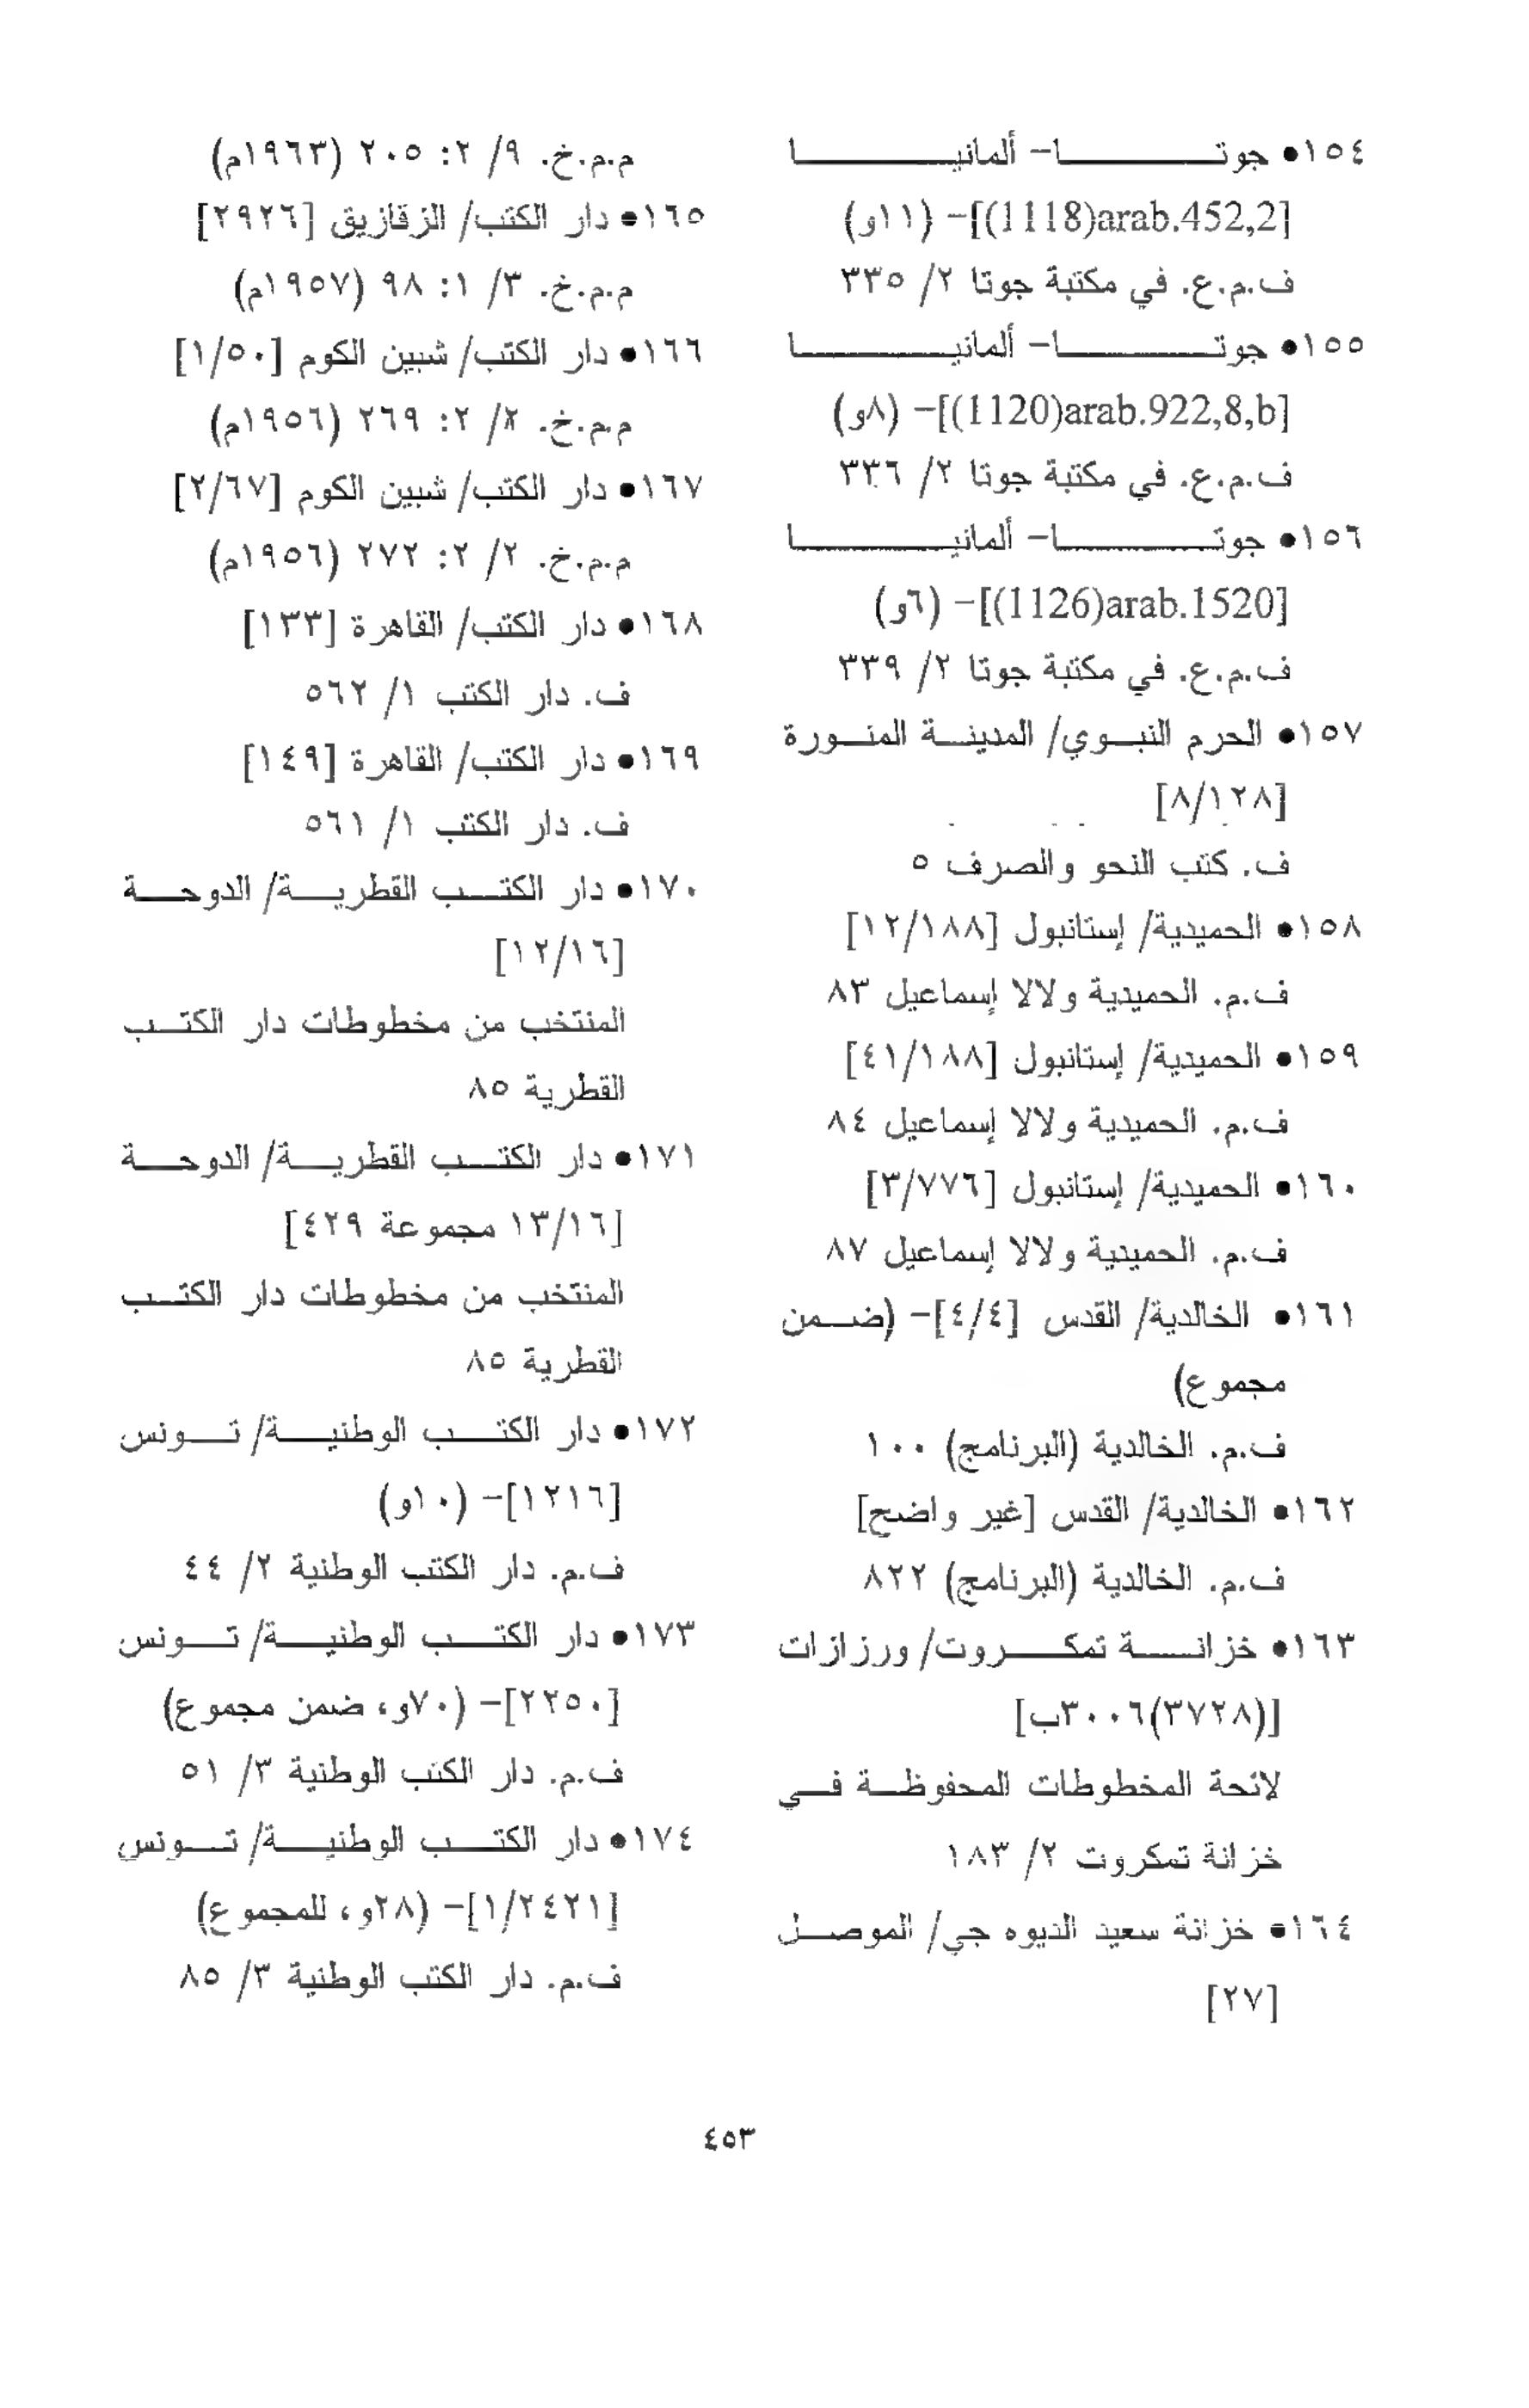 ١٥٤• جوتا- ألمانيا
[1118)arab.452,2)]- (١١و)
ف.م.ع. في مكتبة جوتا ٢/ ٣٣٥
١٥٥• جوتا- ألمانيا
[1120)arab.922,8,b)]- (٨و)
ف.م.ع. في مكتبة جوتا ٢/ ٣٣٦
١٥٦• جوتا- ألمانيا
[1126)arab.1520)]- (٦و)
ف.م.ع. في مكتبة جوتا ٢/ ٣٣٩
١٥٧• الحرم النبوي/ المدينة المنورة
[٨/١٢٨]
ف. كتب النحو والصرف ٥
١٥٨• الحميدية/ إستانبول [١٢/١٨٨]
ف.م. الحميدية ولالا إسماعيل ٨٣
١٥٩• الحميدية/ إستانبول [٤١/١٨٨]
ف.م. الحميدية ولالا إسماعيل ٨٤
١٦٠• الحميدية/ إستانبول [٣/٧٧٦]
ف.م. الحميدية ولالا إسماعيل ٨٧
١٦١• الخالدية/ القدس [٤/٤]- (ضمن
مجموع)
ف.م. الخالدية (البرنامج) ١٠٠
١٦٢• الخالدية/ القدس [غير واضح]
ف.م. الخالدية (البرنامج) ٨٢٢
١٦٣• خزانة تمكروت/ ورزازات
[(٣٧٢٨)٣٠٠٦ب]
لائحة المخطوطات المحفوظة في
خزانة تمكروت ٢/ ١٨٣
١٦٤• خزانة سعيد الديوه جي/ الموصل
[٢٧]
م.م.خ. ٩/ ٢: ٢٠٥ (١٩٦٣م)
١٦٥• دار الكتب/ الزقازيق [٢٩٢٦]
م.م.خ. ٣/ ١: ٩٨ (١٩٥٧م)
١٦٦• دار الكتب/ شبين الكوم [١/٥٠]
م.م.خ. ٢/ ٢: ٢٦٩ (١٩٥٦م)
١٦٧• دار الكتب/ شبين الكوم [٢/٦٧]
م.م.خ. ٢/ ٢: ٢٧٢ (١٩٥٦م)
١٦٨• دار الكتب/ القاهرة [١٣٣]
ف. دار الكتب ١/ ٥٦٢
١٦٩• دار الكتب/ القاهرة [١٤٩]
ف. دار الكتب ١/ ٥٦١
١٧٠• دار الكتب القطرية/ الدوحة
[١٢/١٦]
المنتخب من مخطوطات دار الكتب
القطرية ٨٥
١٧١• دار الكتب القطرية/ الدوحة
[١٣/١٦ مجموعة ٤٢٩]
المنتخب من مخطوطات دار الكتب
القطرية ٨٥
١٧٢• دار الكتب الوطنية/ تونس
[١٢١٦]- (١٠و)
ف.م. دار الكتب الوطنية ٢/ ٤٤
١٧٣• دار الكتب الوطنية/ تونس
[٢٢٥٠]- (٧٠و، ضمن مجموع)
ف.م. دار الكتب الوطنية ٣/ ٥١
١٧٤• دار الكتب الوطنية/ تونس
[١/٢٤٢١]- (٢٨و، للمجموع)
ف.م. دار الكتب الوطنية ٣/ ٨٥
٤٥٣